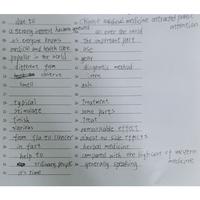 due to
Chinese medical medicine attracted public attention
a strong interest
all over the world
as everyone knows
the important part
medical and health care
use
popular in the world
gear
different from
diagnostic method
observe
smell
ask
typical
treatment
stimulate
some parts
finish
treat
various
remarkable effect
from flu to cancer
almost no side effects
in part
herbal medicine
help to
compared with the high cost of western medicine
ordinary people
generally speaking
it's time